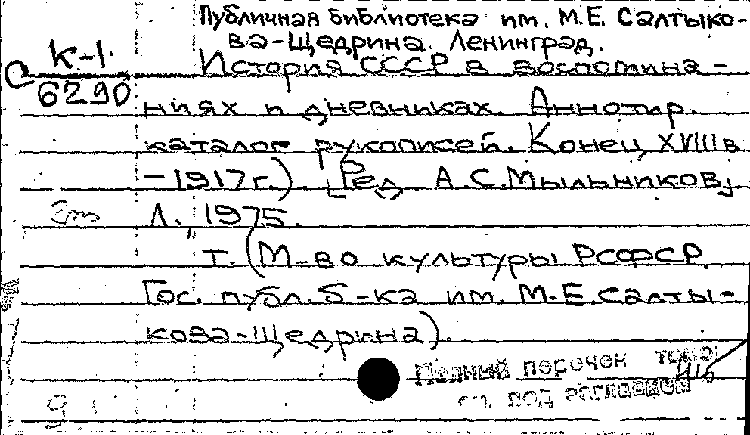 Публичная библиотека им. М.Е. Салтыко-
ва-Щедрина. Ленинград.
К-1
6290
История СССР в воспомина-
ниях и дневниках. Аннотир.
каталог рукописей. Конец XVIIIв
-1917г.). [Ред. А.С.Мыльников,
Л., 1975.
т. (М-во культуры РСФСР.
Гос. публ. б-ка им. М.Е.Салты-
кова-Щедрина).
Полный перечен томов
см. под заглавием
9